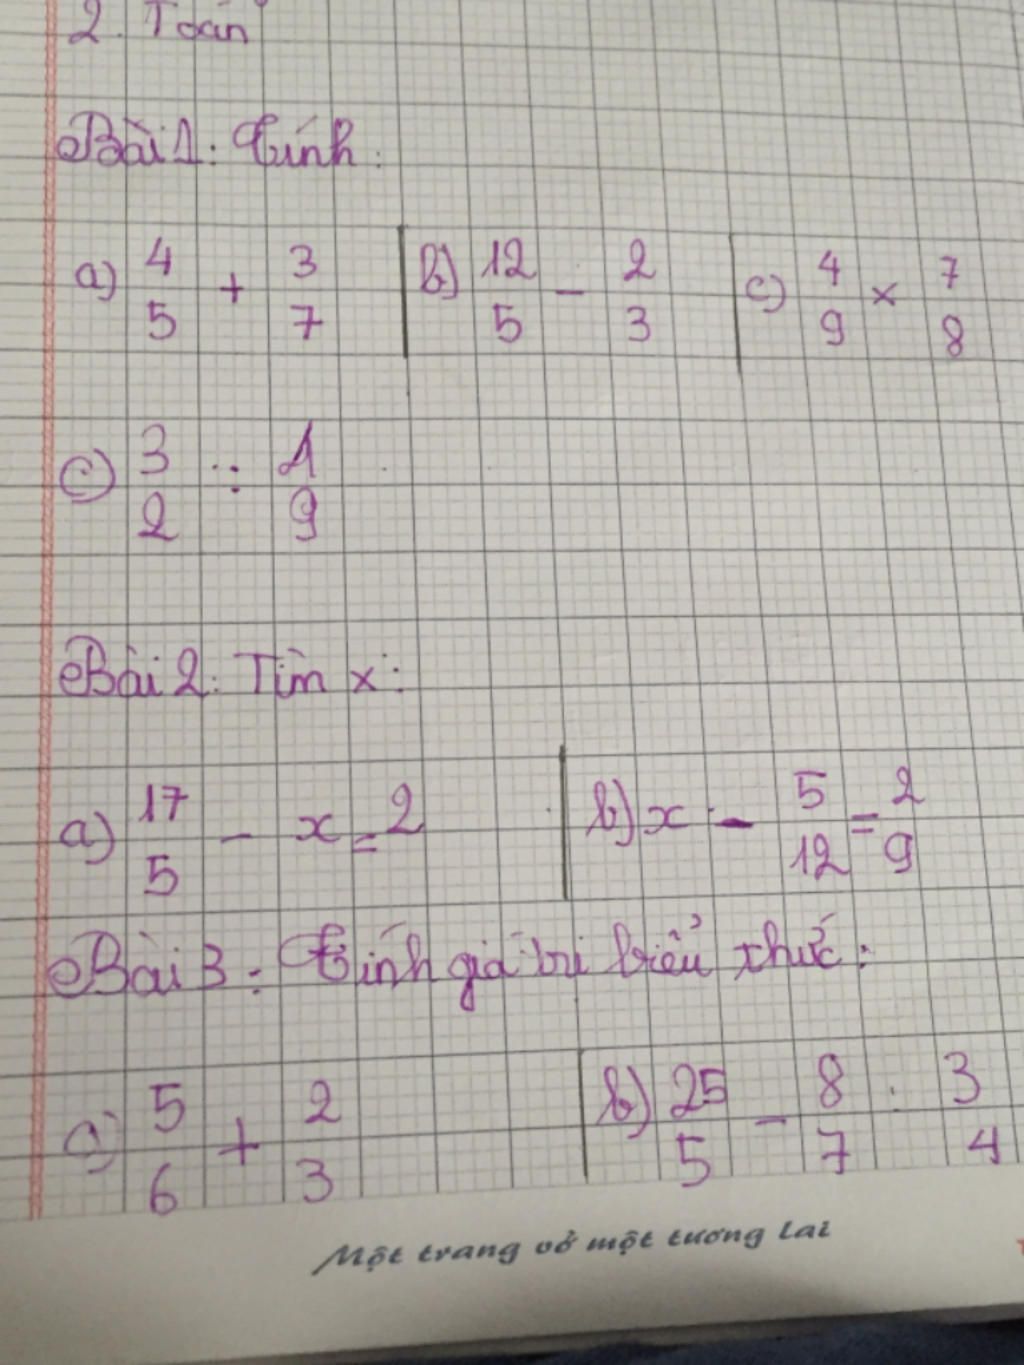 2. Toán
Bài 1: Tính:
a) 4/5 + 3/7 b) 12/5 - 2/3 c) 4/9 × 7/8
c) 3/2 : 1/9
Bài 2: Tìm x:
a) 17/5 - x = 2 b) x - 5/12 = 2/9
Bài 3: Tính giá trị biểu thức:
a) 5/6 + 2/3 b) 25/5 - 8/7 : 3/4
Một trang vở một tương lai